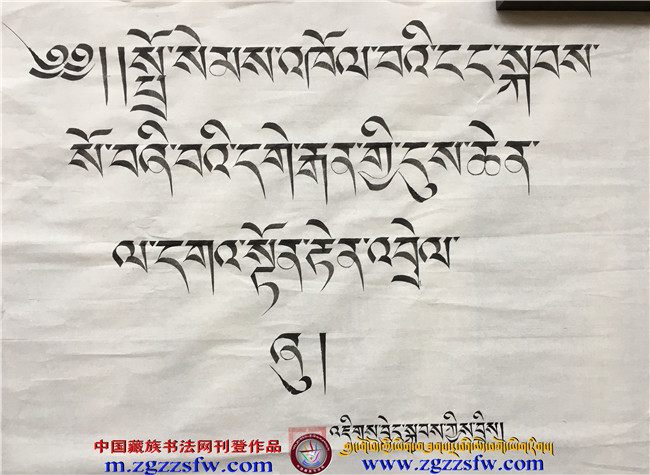 ༄༅།།སྤྲོ་སེམས་འཁོལ་བའི་ངང་སྐབས་
སོ་བཞི་བའི་དགེ་རྒན་གྱི་དུས་ཆེན་
ལ་དགའ་སྟོན་རྟེན་འབྲེལ་
ཞུ།
འཇིགས་བྱེད་སྐྱབས་ཀྱིས་བྲིས།
中国藏族书法网刊登作品
m.zgzzsfw.com www.zgzzsfw.com